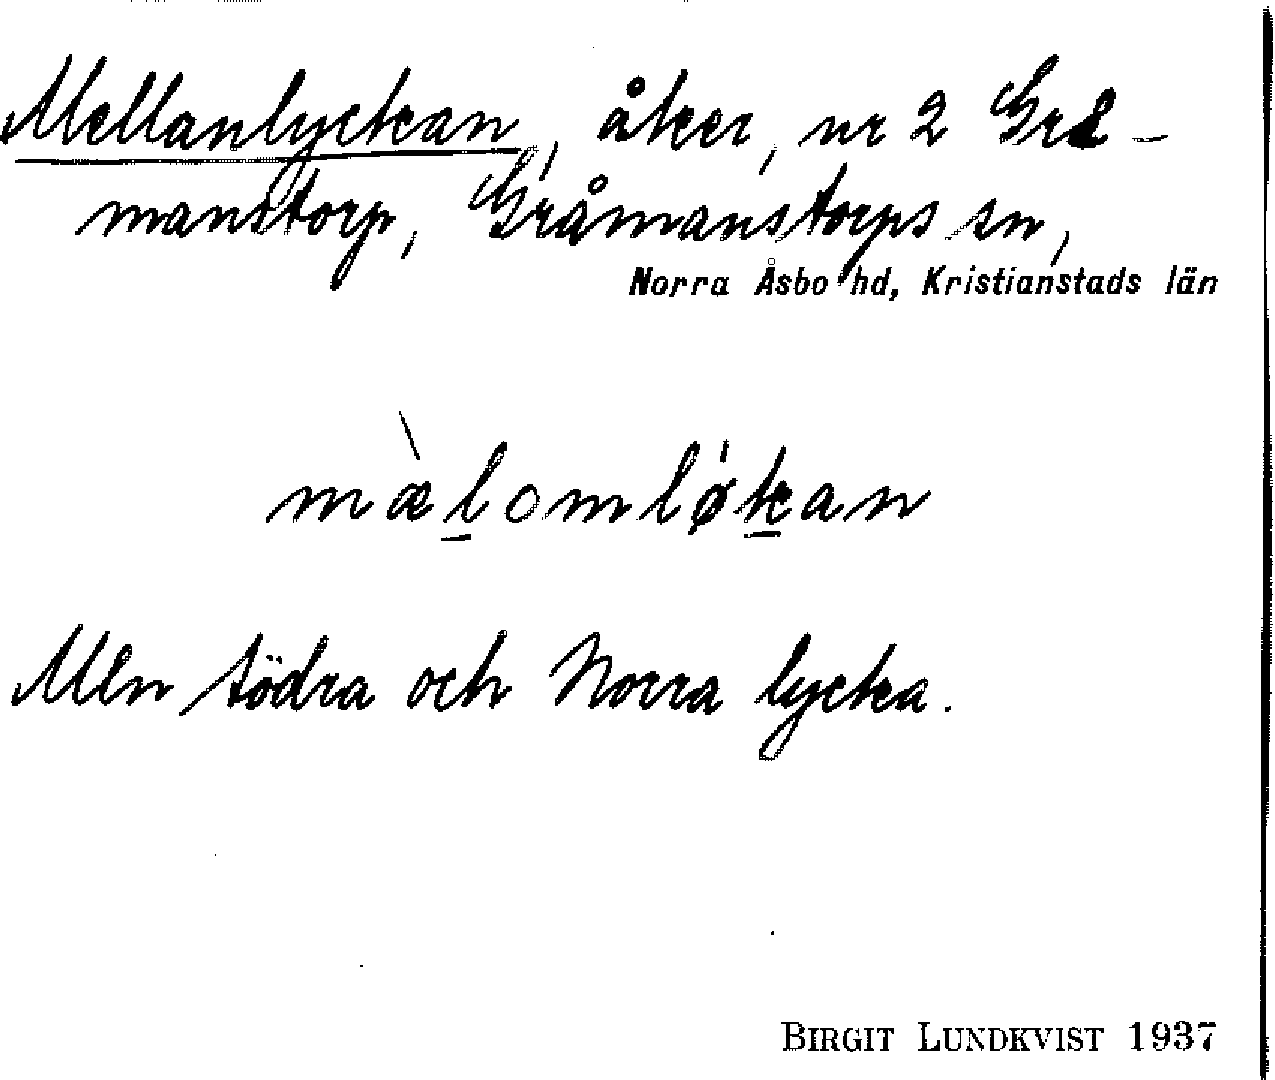 Mellanlyckan, åker, nr 2 Gre-
manstorp, Gråmanstorps sn,
Norra Åsbo hd, Kristianstads län
mæ̀lomløkan
Mln södra och Norra lycka.
BIRGIT LUNDKVIST 1937